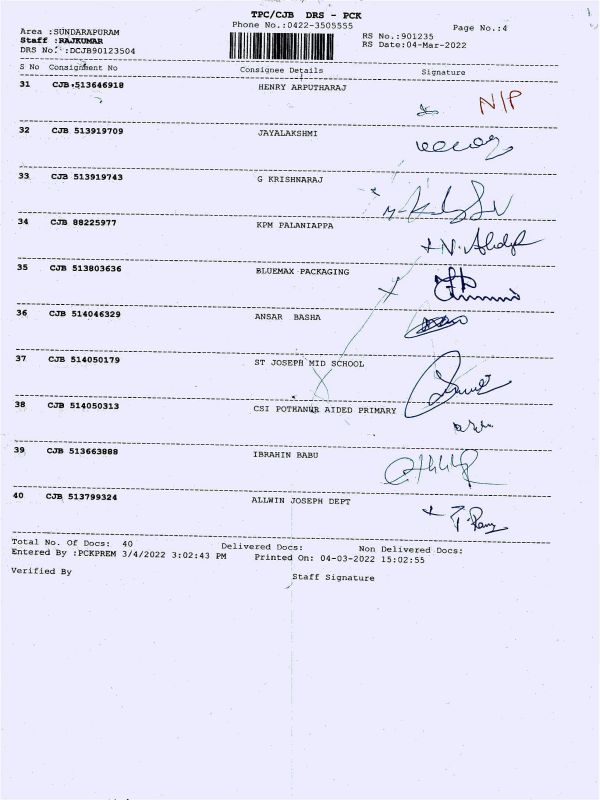 TPC/CJB DRS - PCK
Phone No.:0422-3505555
Page No.:4
Area :SUNDARAPURAM
Staff :RAJKUMAR
DRS No. :DCJB90123504
RS No.:901235
RS Date:04-Mar-2022
S No Consignment No Consignee Details Signature
31 CJB 513646918 HENRY ARPUTHARAJ N/P
32 CJB 513919709 JAYALAKSHMI
33 CJB 513919743 G KRISHNARAJ
34 CJB 88225977 KPM PALANIAPPA
35 CJB 513803636 BLUEMAX PACKAGING
36 CJB 514046329 ANSAR BASHA
37 CJB 514050179 ST JOSEPH MID SCHOOL
38 CJB 514050313 CSI POTHANUR AIDED PRIMARY
39 CJB 513663888 IBRAHIN BABU
40 CJB 513799324 ALLWIN JOSEPH DEPT
Total No. Of Docs: 40 Delivered Docs: Non Delivered Docs:
Entered By :PCKPREM 3/4/2022 3:02:43 PM Printed On: 04-03-2022 15:02:55
Verified By
Staff Signature